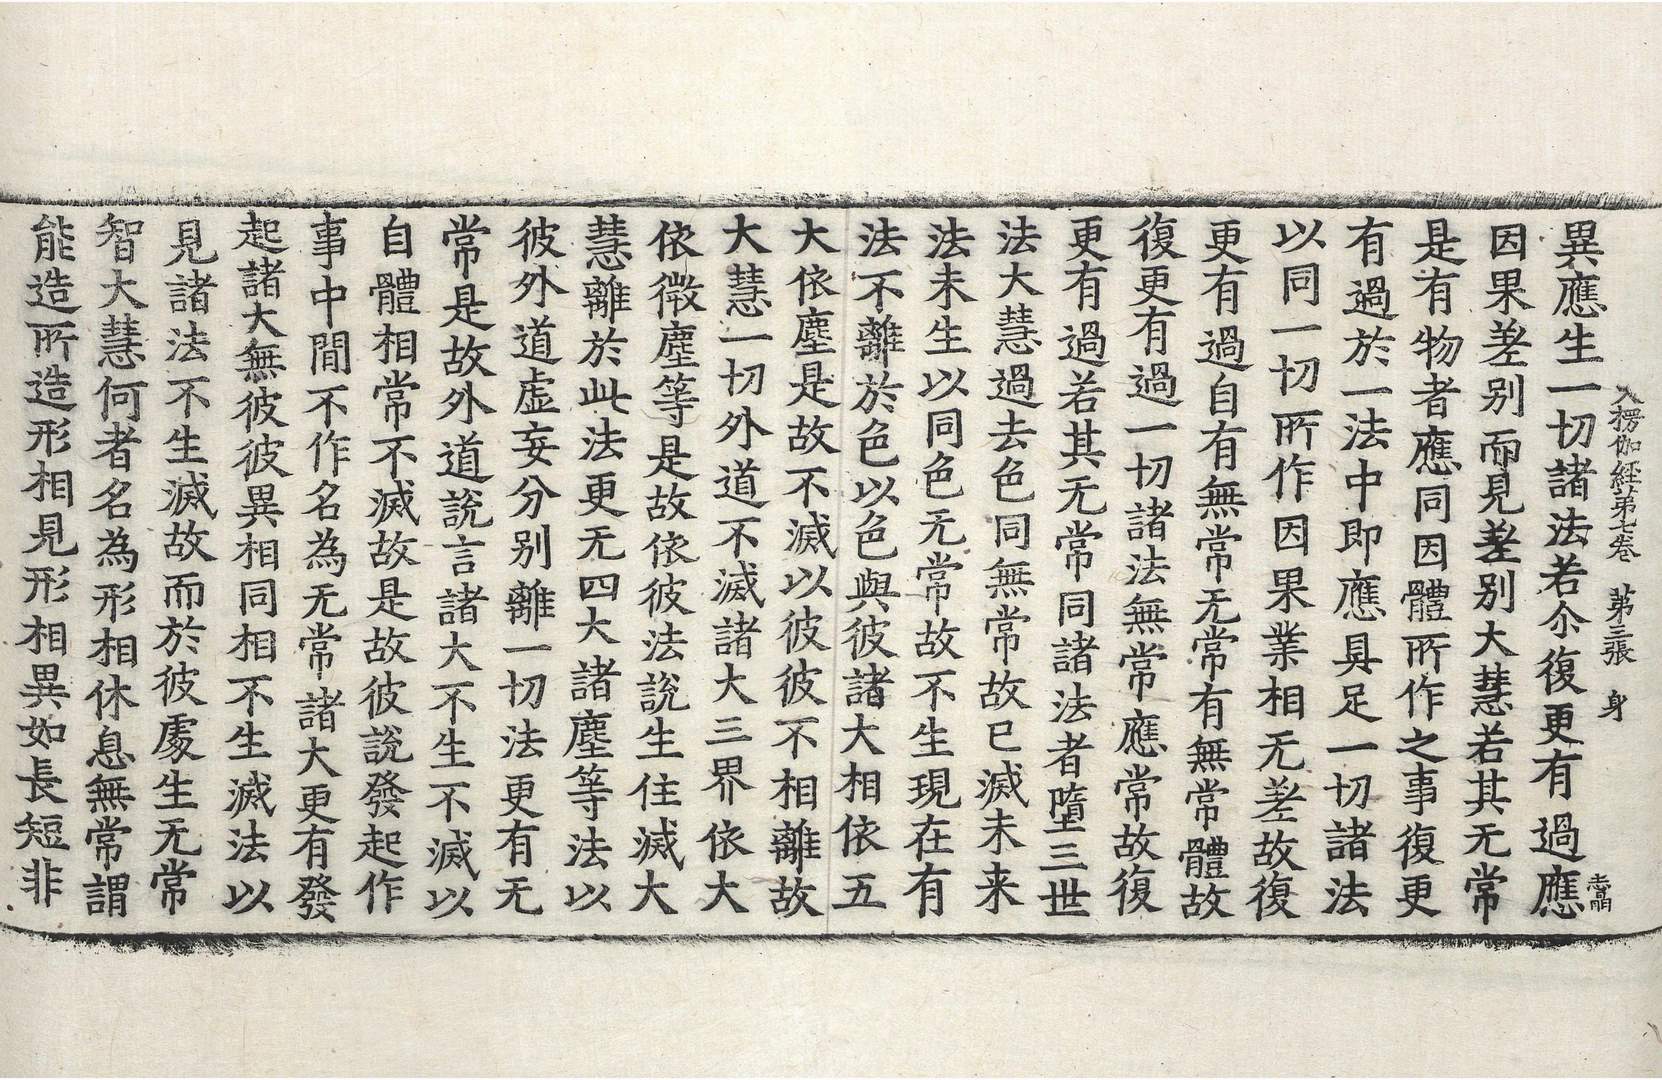 入楞伽經第七卷　第三張　身
異應生一切諸法若尒復更有過應
因果差别而見差别大慧若其无常
是有物者應同因體所作之事復更
有過於一法中即應具足一切諸法
以同一切所作因果業相无差故復
更有過自有無常无常有無常體故
復更有過一切諸法無常應常故復
更有過若其无常同諸法者墮三世
法大慧過去色同無常故已滅未来
法未生以同色无常故不生現在有
法不離於色以色與彼諸大相依五
大依塵是故不滅以彼彼不相離故
大慧一切外道不滅諸大三界依大
依微塵等是故依彼法說生住滅大
慧離於此法更无四大諸塵等法以
彼外道虛妄分别離一切法更有无
常是故外道說言諸大不生不滅以
自體相常不滅故是故彼說發起作
事中間不作名為无常諸大更有發
起諸大無彼彼異相同相不生滅法以
見諸法不生滅故而於彼處生无常
智大慧何者名為形相休息無常謂
能造所造形相見形相異如長短非